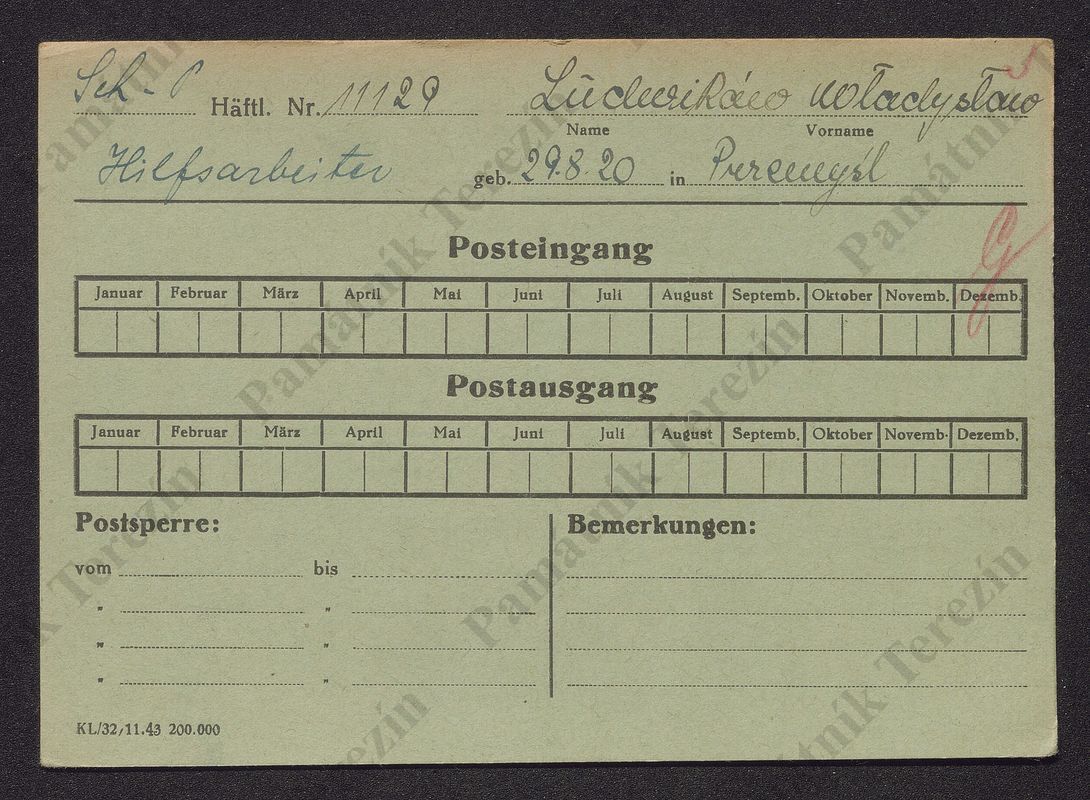 Sch - P Häftl. Nr. 11129 Ludwików Władysław
Name Vorname
Hilfsarbeiter geb. 29.8.20 in Przemyśl
Posteingang
Januar Februar März April Mai Juni Juli August Septemb. Oktober Novemb. Dezemb.
Postausgang
Januar Februar März April Mai Juni Juli August Septemb. Oktober Novemb. Dezemb.
Postsperre: Bemerkungen:
vom bis
" "
" "
" "
KL/32/11.43 200.000
Památník Terezín